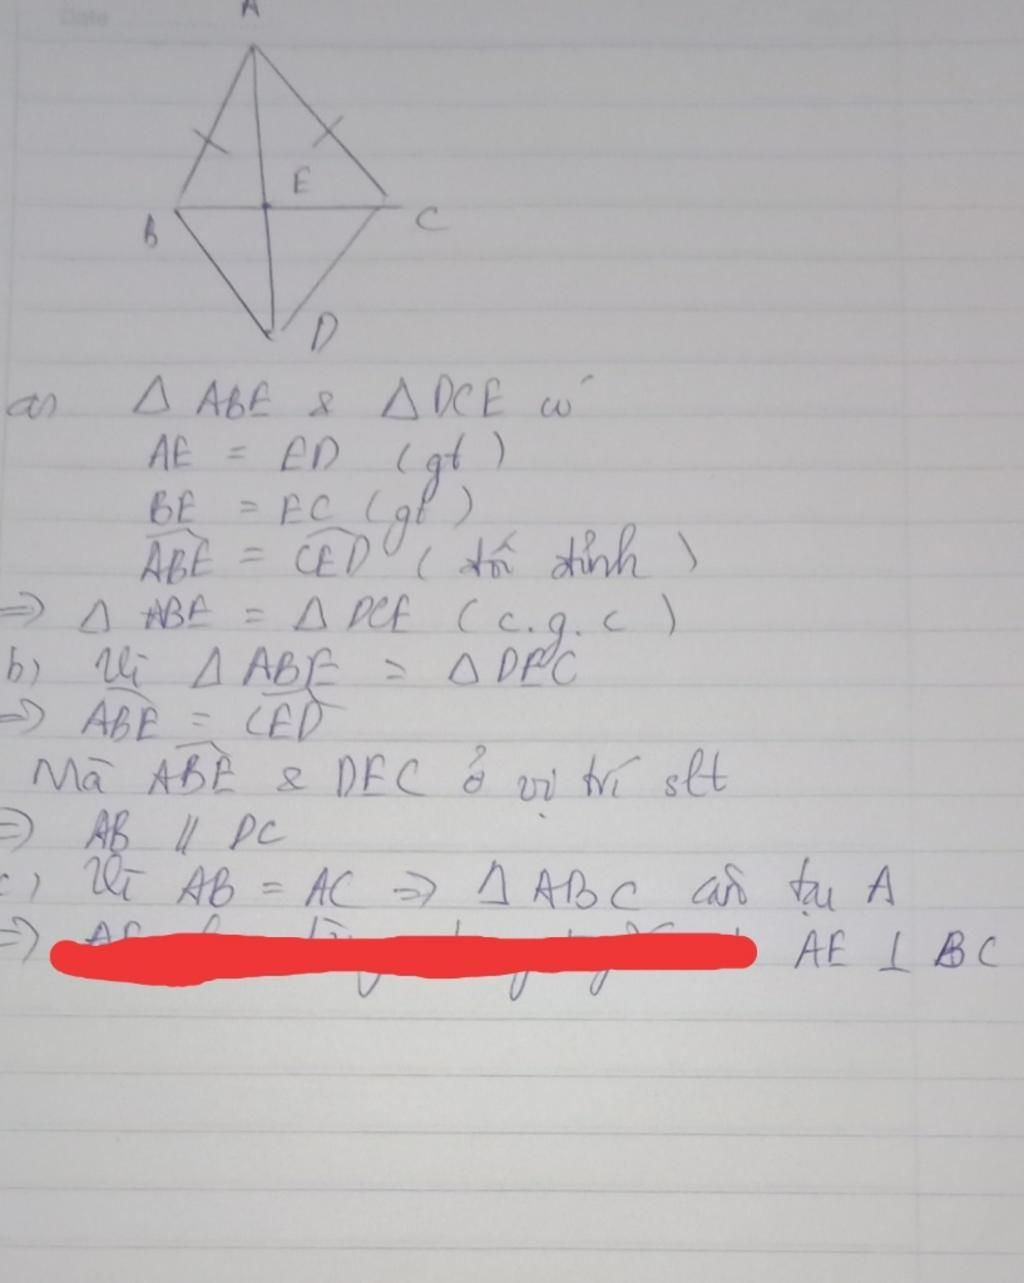 Date
A
E
B
C
D
a) Δ ABE & Δ DCE có
AE = ED (gt)
BE = EC (gt)
ABE = CED (đối đỉnh)
=> Δ ABE = Δ DCE (c.g.c)
b) Vì Δ ABE = Δ DEC
=> ABE = CED
Mà ABE & DEC ở vị trí slt
=> AB // DC
c) Vì AB = AC => Δ ABC cân tại A
=> AE ⊥ BC